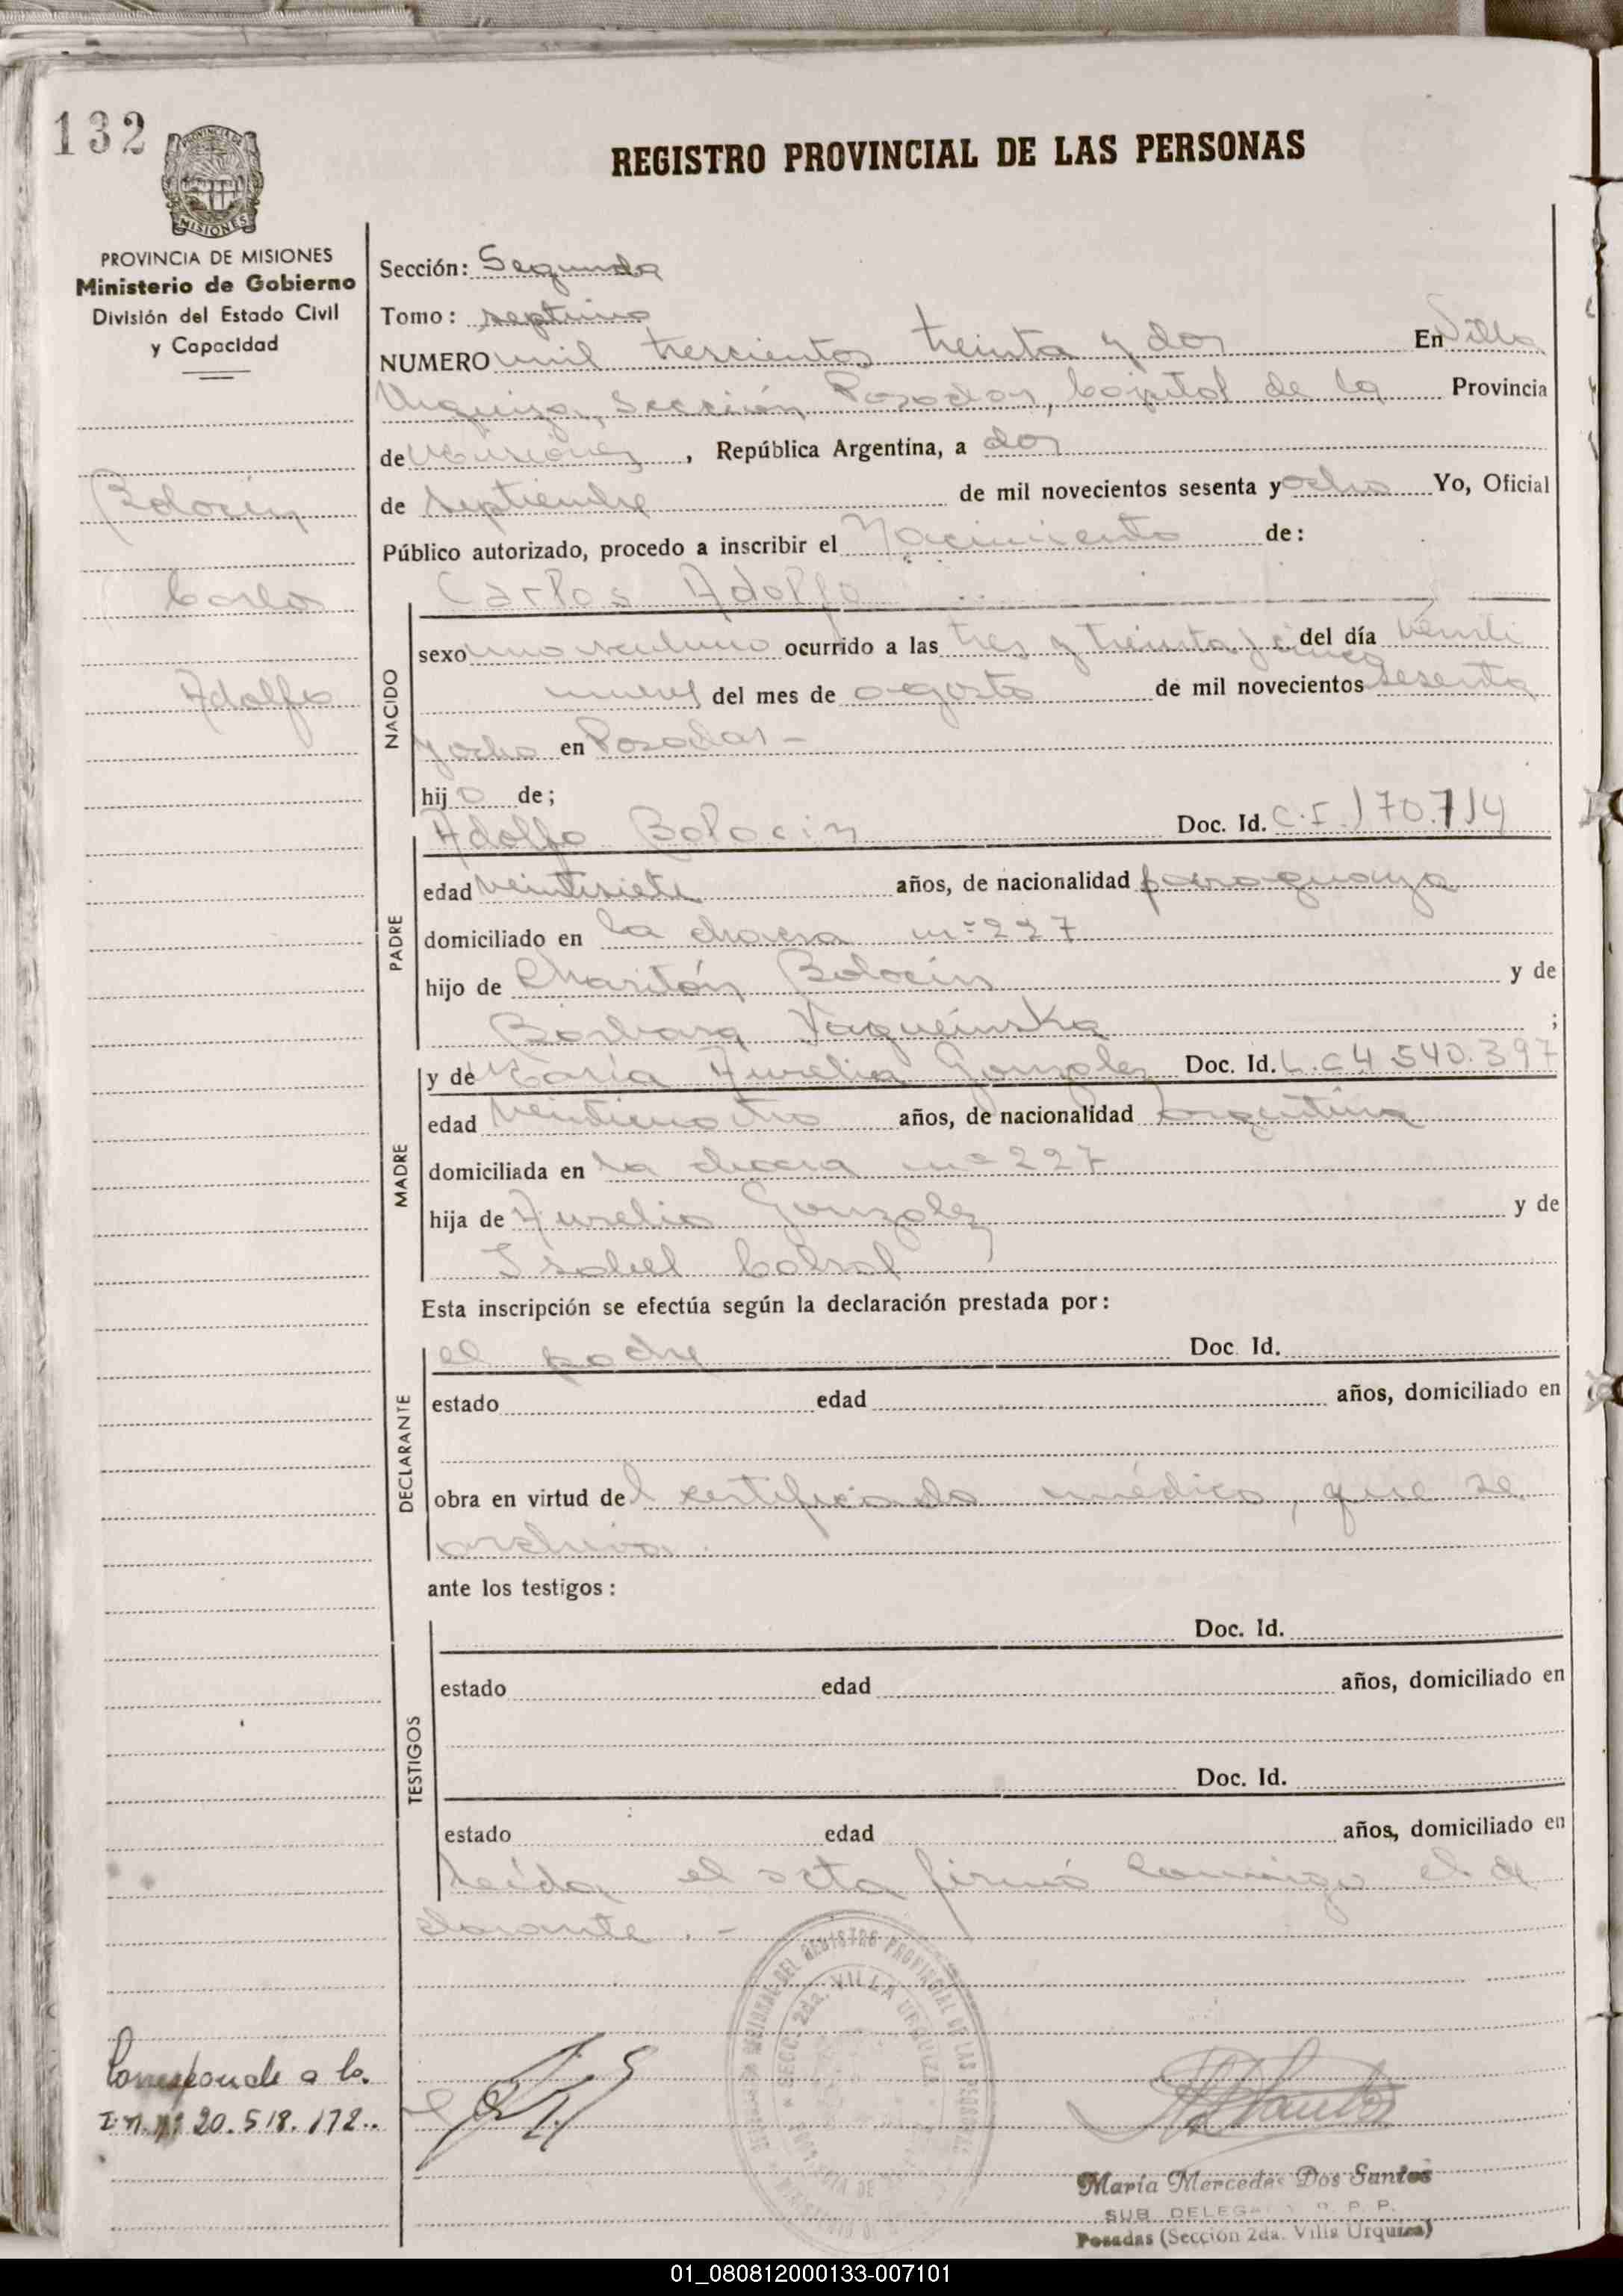 132
PROVINCIA DE MISIONES
PROVINCIA DE MISIONES
Ministerio de Gobierno
División del Estado Civil
y Capacidad
Bolocin
Carlos
Adolfo
REGISTRO PROVINCIAL DE LAS PERSONAS
Sección: Segunda
Tomo: septimo
NUMERO mil trescientos treinta y dos En Villa
Urquiza, Sección Posadas, Capital de la Provincia
de Misiones, República Argentina, a dos
de septiembre de mil novecientos sesenta y ocho Yo, Oficial
Público autorizado, procedo a inscribir el Nacimiento de:
Carlos Adolfo
NACIDO
sexo masculino ocurrido a las tres y treinta y cinco del día veinti
nueve del mes de agosto de mil novecientos sesenta
y ocho en Posadas -
hijo de;
PADRE
Adolfo Bolocin Doc. Id. C.I. 170.714
edad veintisiete años, de nacionalidad paraguaya
domiciliado en la chacra nº 227
hijo de Charitón Bolocin y de
Bárbara ;
MADRE
y de María Aurelia Gonzalez Doc. Id. L.C 4.540.397
edad veinticuatro años, de nacionalidad argentina
domiciliada en la chacra nº 227
hija de Aurelio Gonzalez y de
Isabel Cabral
Esta inscripción se efectúa según la declaración prestada por:
DECLARANTE
el padre Doc. Id.
estado edad años, domiciliado en
obra en virtud del certificado médico, que se
archiva.
ante los testigos:
TESTIGOS
Doc. Id.
estado edad años, domiciliado en
Doc. Id.
estado edad años, domiciliado en
Leída el acta firmó conmigo el de
clarante. -
DEL REGISTRO PROVINCIAL DE LAS PERSONAS
SECC. 2da. VILLA URQUIZA
Corresponde a la
I.M. Nº 20.518.172..
María Mercedes Dos Santos
SUB DELEG R. P. P.
Posadas (Sección 2da. Villa Urquiza)
01_080812000133-007101